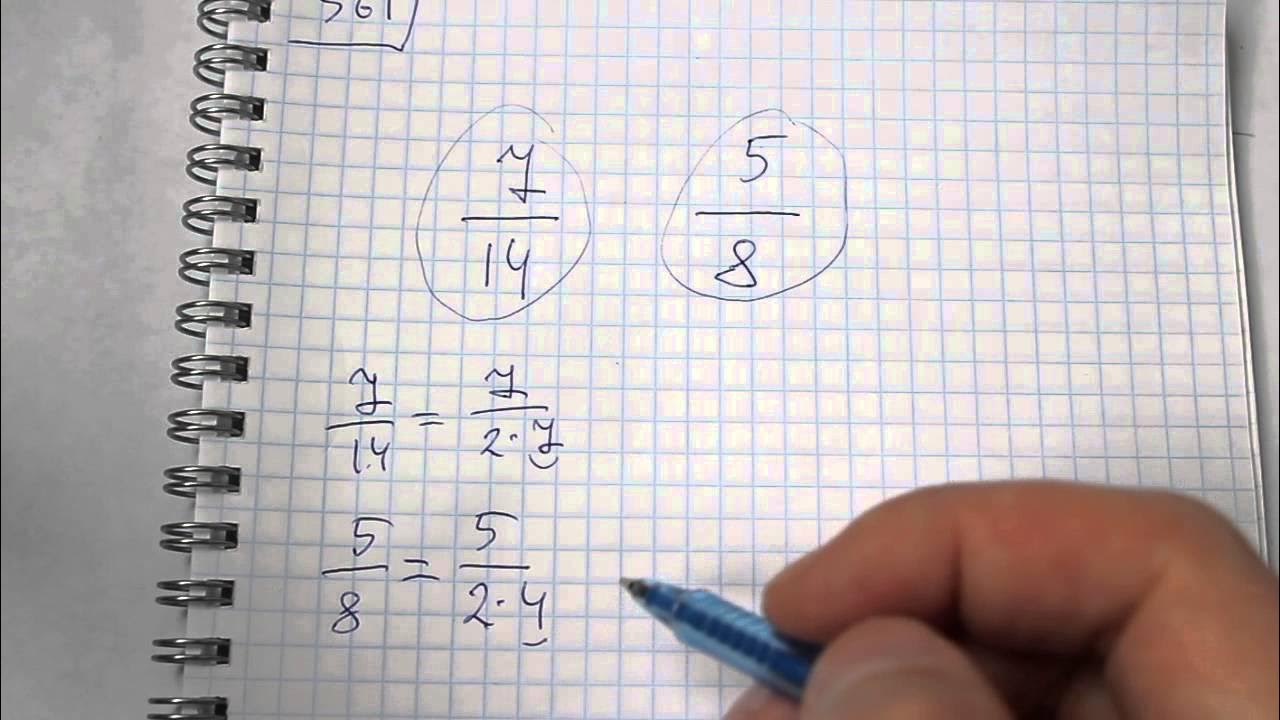 561
7/14 5/8
7/14 = 7/2·7
5/8 = 5/2·4